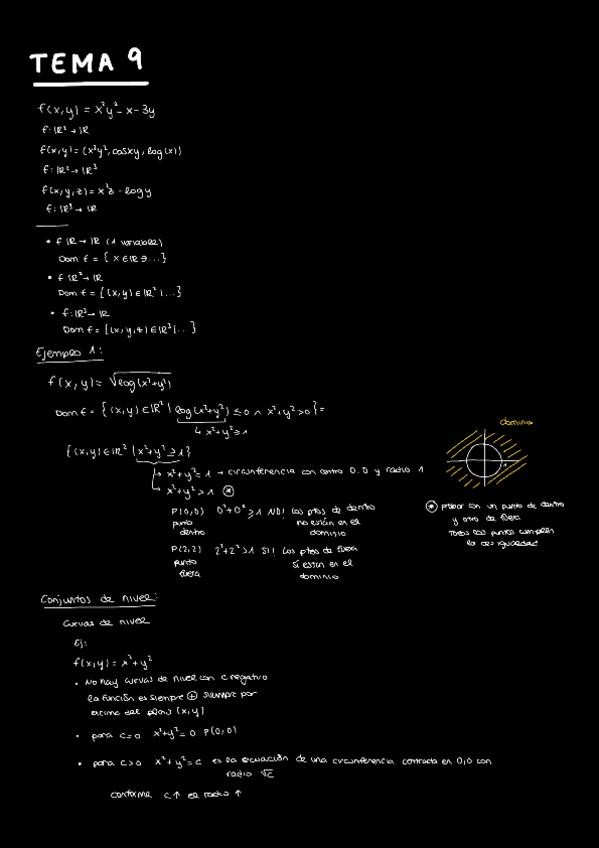 TEMA 9
f(x,y) = x²y² - x - 3y
f: IR² → IR
f(x,y) = (x²y², cosxy, log(x))
f: IR² → IR³
f(x,y,z) = x³z - logy
f: IR³ → IR
• f IR → IR (1 variable)
Dom f = { x ∈ IR ∋ ...}
• f IR² → IR
Dom f = {(x,y) ∈ IR² | ...}
• f: IR³ → IR
Dom f = {(x,y,z) ∈ IR³ | ...}
Ejemplo 1:
f(x,y) = √log(x²+y²)
Dom f = { (x,y) ∈ IR² | log(x²+y²) ≤ 0 ∧ x²+y² > 0 } =
↳ x²+y² ≥ 1
{(x,y) ∈ IR² | x²+y² ≥ 1}
↳ x²+y² = 1 → circunferencia con centro 0.0 y radio 1
↳ x²+y² > 1 ⊛
P(0,0) 0²+0² > 1 NO! Los ptos de dentro
punto no están en el
dentro dominio
P(2,2) 2²+2² > 1 SI! Los ptos de fuera
punto sí están en el
fuera dominio
dominio
1
⊛ probar con un punto de dentro
y otro de fuera
Todos los puntos cumplen
la desigualdad
Conjuntos de nivel:
Curvas de nivel
Ej:
f(x,y) = x²+y²
• No hay curvas de nivel con c negativo
la función es siempre ⊕ siempre por
encima del plano (x,y)
• para c=0 x²+y²=0 P(0,0)
• para c>0 x²+y²=c es la ecuación de una circunferencia centrada en 0,0 con
radio √c
conforme c↑ el radio ↑